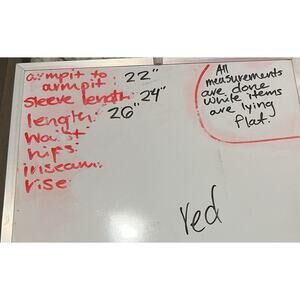 armpit to
armpit: 22"
sleeve length: 24"
length: 26"
waist
hips:
inseam:
rise:
All
measurements
are done
while items
are lying
flat.
red